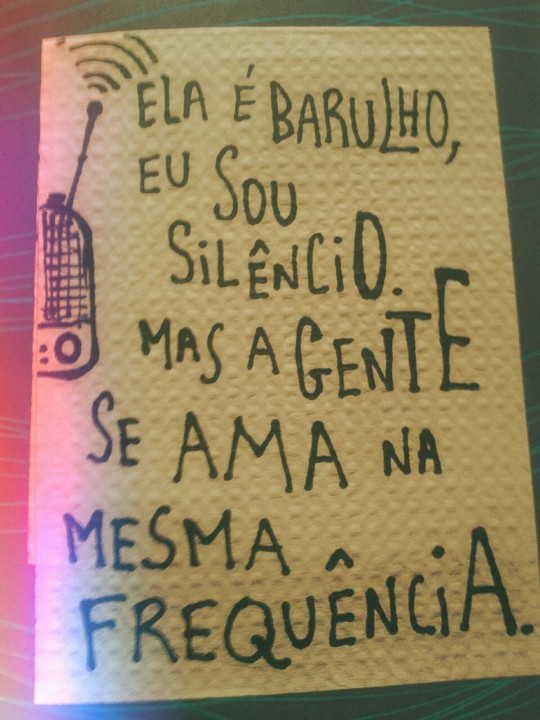 ELA É BARULHO,
EU SOU
SiLÊNCiO.
MAS A GENTE
SE AMA NA
MESMA
FREQUÊNCiA.